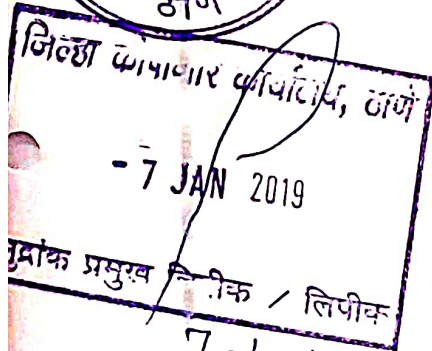 ठाणे
जिल्हा कोषागार कार्यालय, ठाणे
- 7 JAN 2019
मुद्रांक प्रमुख लिपीक / लिपीक